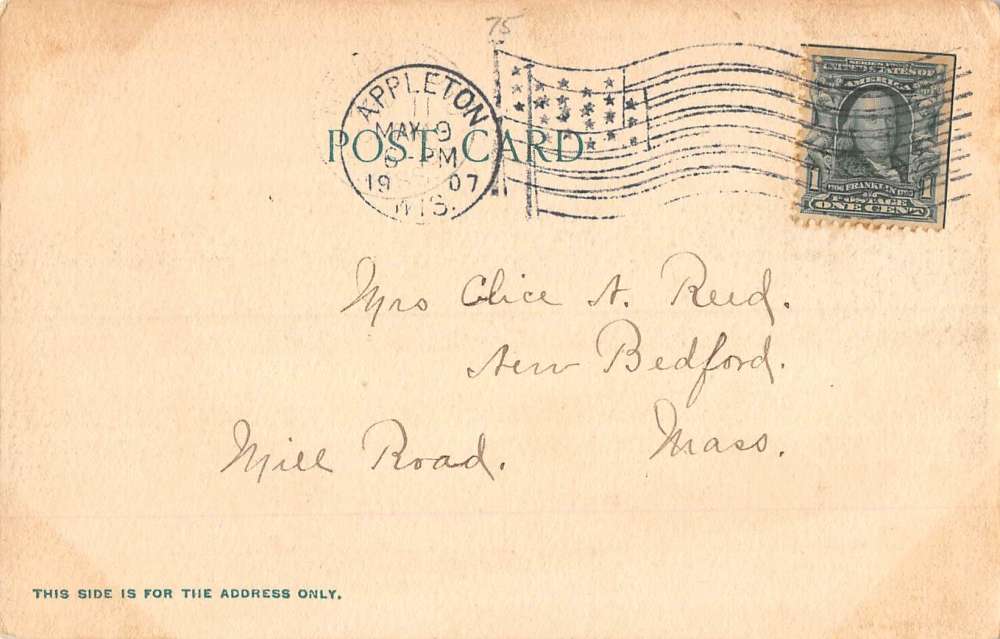 75
APPLETON
11
MAY 9
PM
19 07
WIS.
POST CARD
SERIES 1902
UNITED STATES OF
AMERICA
1 1706 FRANKLIN 1790 1
POSTAGE
ONE CENT
Mrs Alice N. Reed.
New Bedford.
Mill Road. Mass.
THIS SIDE IS FOR THE ADDRESS ONLY.